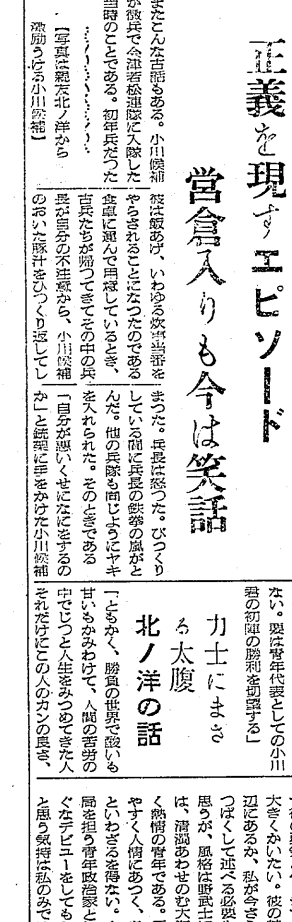 正義を現すエピソード
営倉入りも今は笑話
またこんな古話もある。小川候補
が徴兵で会津若松連隊に入隊した
当時のことである。初年兵だつた
【写真は親友北ノ洋から
激励うける小川候補】
彼は飯あげ、いわゆる炊事当番を
やらされることになつたのである
食卓に運んで用意しているとき、
古兵たちが帰つてきてその中の兵
長が自分の不注意から、小川候補
のおいた豚汁をひつくり返してし
まつた。兵長は怒つた。びつくり
している間に兵長の鉄拳の嵐がと
んだ。他の兵隊も同じようにヤキ
を入れられた。そのときである
「自分が悪いくせになにをするの
か」と銃架に手をかけた小川候補
ない。要は青年代表としての小川
君の初陣の勝利を切望する」
力士にまさ
る太腹
北ノ洋の話
「ともかく、勝負の世界で酸いも
甘いもかみわけて、人間の苦労の
中でじつと人生をみつめてきた人
それだけにこの人のカンの良さ、
大きくかいたい。彼の
辺にあるか、私が今さ
つぱくして述べる必要
思うが、風格は野武士
は、清濁あわせのむ大
く熱情の青年である。
やすく人情にあつく、
といわざるを得ない。
局を担う青年政治家と
ぐなデビューをしても
と思う気持は私のみで